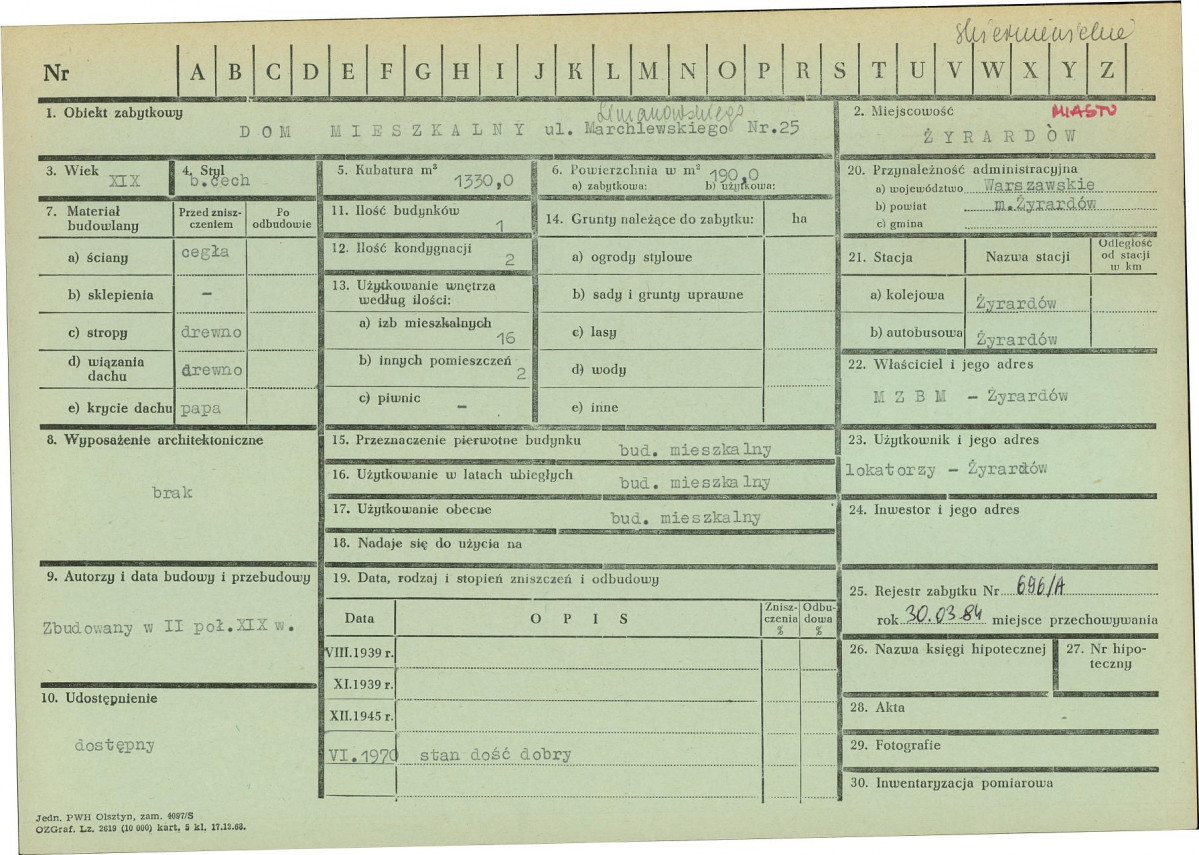 skierniewickie
Nr A B C D E F G H I J K L M N O P R S T U V W X Y Z
1. Obiekt zabytkowy
Limanowskiego
DOM MIESZKALNY ul. Marchlewskiego Nr.25
2. Miejscowość MIASTO
ŻYRARDÓW
3. Wiek XIX
4. Styl
b.cech
5. Kubatura m³ 1330,0
6. Powierzchnia w m² 190,0
a) zabytkowa: b) użytkowa:
20. Przynależność administracyjna
a) województwo Warszawskie
b) powiat m.Żyrardów
c) gmina
7. Materiał budowlany
Przed zniszczeniem
Po odbudowie
a) ściany cegła
b) sklepienia –
c) stropy drewno
d) wiązania dachu drewno
e) krycie dachu papa
11. Ilość budynków 1
12. Ilość kondygnacji 2
13. Użytkowanie wnętrza
według ilości:
a) izb mieszkalnych 16
b) innych pomieszczeń 2
c) piwnic –
14. Grunty należące do zabytku: ha
a) ogrody stylowe
b) sady i grunty uprawne
c) lasy
d) wody
e) inne
21. Stacja
Nazwa stacji
Odległość
od stacji
w km
a) kolejowa Żyrardów
b) autobusowa Żyrardów
22. Właściciel i jego adres
M Z B M – Żyrardów
8. Wyposażenie architektoniczne
brak
15. Przeznaczenie pierwotne budynku bud. mieszkalny
16. Użytkowanie w latach ubiegłych bud. mieszkalny
17. Użytkowanie obecne bud. mieszkalny
18. Nadaje się do użycia na
23. Użytkownik i jego adres
lokatorzy – Żyrardów
24. Inwestor i jego adres
9. Autorzy i data budowy i przebudowy
Zbudowany w II poł.XIX w.
19. Data, rodzaj i stopień zniszczeń i odbudowy
Data OPIS
Zniszczenia %
Odbudowa %
VIII.1939 r.
XI.1939 r.
XII.1945 r.
VI.1970 stan dość dobry
25. Rejestr zabytku Nr 696/A
rok 30.03.84 miejsce przechowywania
26. Nazwa księgi hipotecznej
27. Nr hipoteczny
10. Udostępnienie
dostępny
28. Akta
29. Fotografie
30. Inwentaryzacja pomiarowa
Jedn. PWH Olsztyn, zam. 4097/S
OZGraf. Lz. 2619 (10 000) kart. 5 kl. 17.12.68.